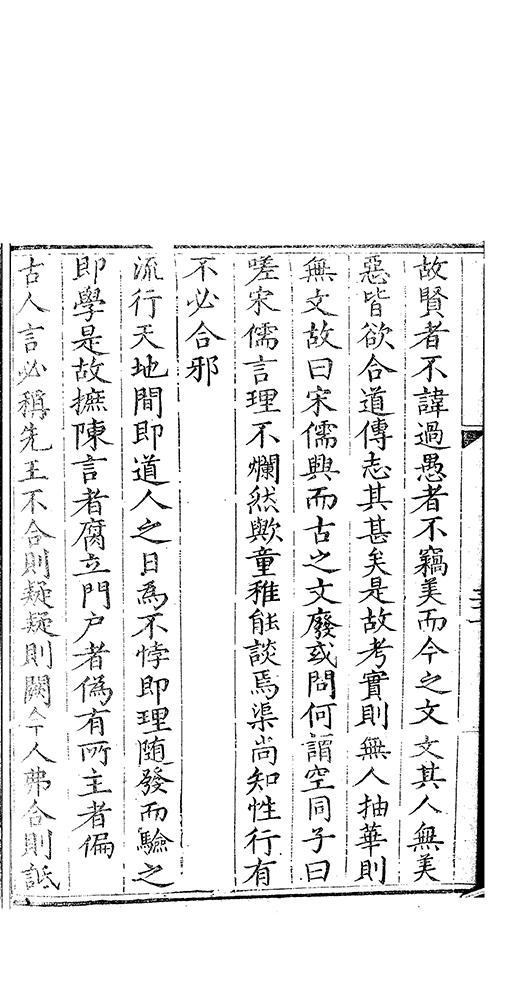 故賢者不諱過愚者不竊美而今之文文其人無美
惡皆欲合道傳志其甚矣是故考實則無人抽華則
無文故曰宋儒興而古之文廢或問何謂空同子曰
嗟宋儒言理不爛然歟童稚能談焉渠尚知性行有
不必合邪
流行天地間即道人之日為不悖即理隨發而驗之
即學是故摭陳言者腐立門户者偽有所主者偏
古人言必稱先王不合則疑疑則闕今人弗合則詆